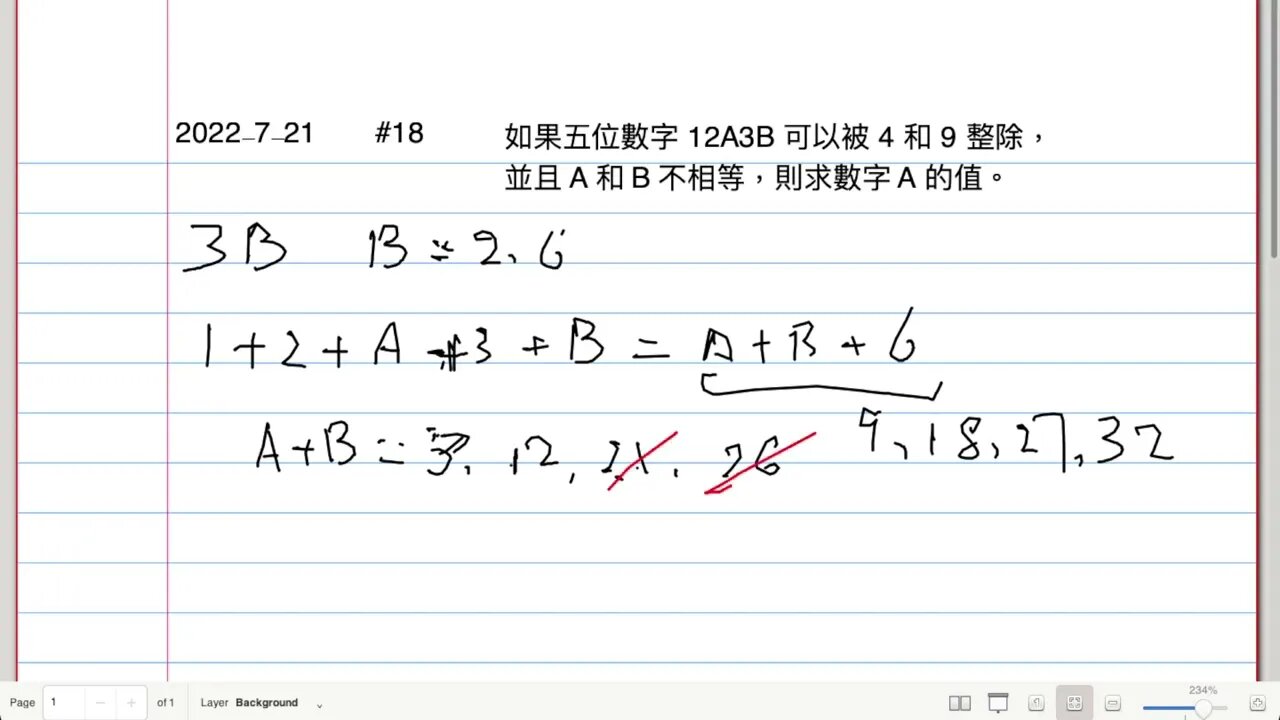 2022-7-21 #18 如果五位數字 12A3B 可以被 4 和 9 整除，
並且 A 和 B 不相等，則求數字 A 的值。
3B B = 2, 6
1 + 2 + A + 3 + B = A + B + 6
9, 18, 27, 32
A + B = 3, 12, 21, 26
Page 1 of 1 Layer Background 234%